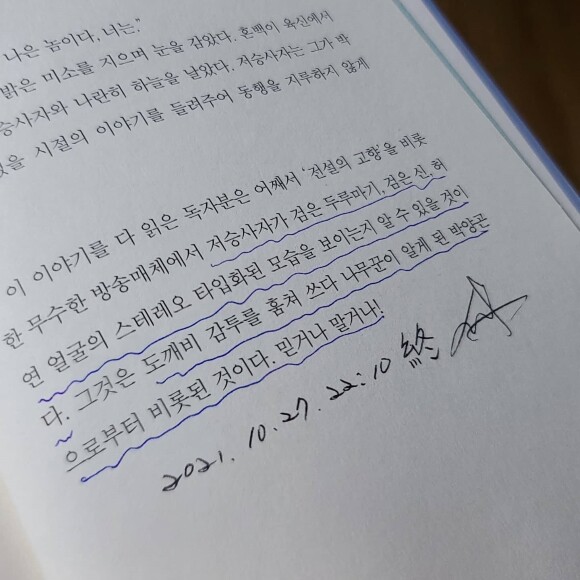 나은 놈이다, 너는."
밝은 미소를 지으며 눈을 감았다. 혼백이 육신에서
승사자와 나란히 하늘을 날았다. 저승사자는 그가 박
을 시절의 이야기를 들려주어 동행을 지루하지 않게
이 이야기를 다 읽은 독자분은 어째서 '전설의 고향'을 비롯
한 무수한 방송매체에서 저승사자가 검은 두루마기, 검은 신, 허
연 얼굴의 스테레오 타입화된 모습을 보이는지 알 수 있을 것이
다. 그것은 도깨비 감투를 훔쳐 쓰다 나무꾼이 알게 된 박양곤
으로부터 비롯된 것이다. 믿거나 말거나!
2021. 10. 27. 22:10 終